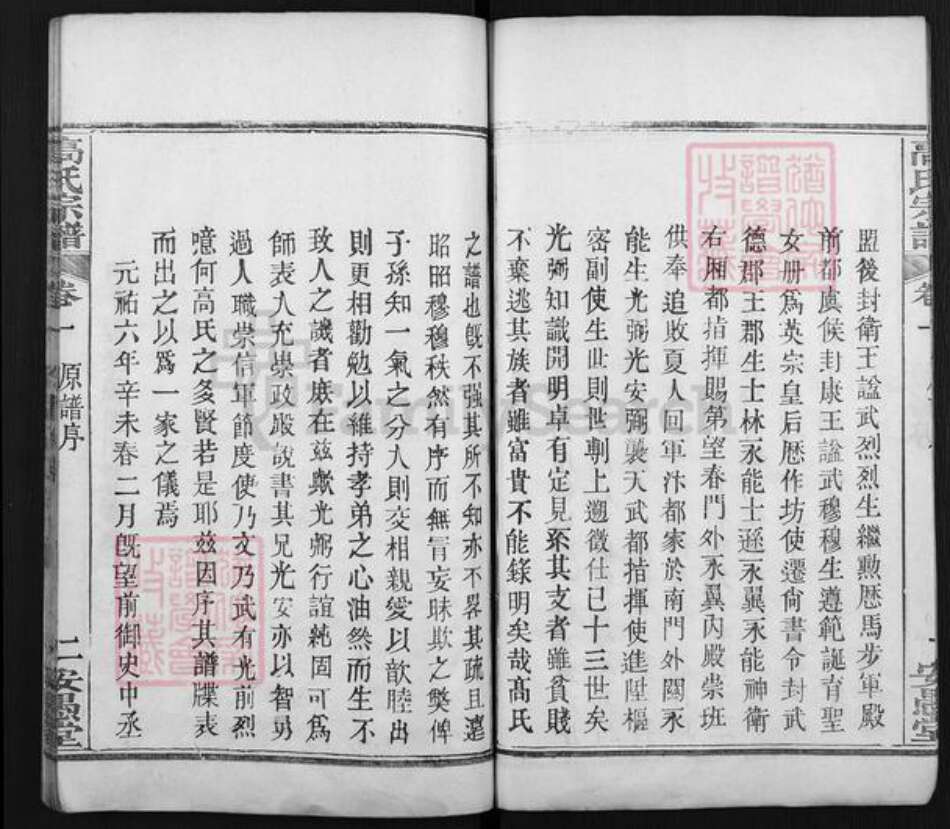 盟後封衛王諡武烈烈生繼勲歴馬步軍殿
前都虞候封康王諡武穆穆生遵範誕育聖
女册爲英宗皇后歴作坊使遷尙書令封武
德郡王郡生士林永能士遜永翼永能神衛
右廂都指揮賜第望春門外永翼內殿崇班
供奉追敗夏人回軍汴都家於南門外關永
能生光弼光安弼襲天武都指揮使進陞樞
密副使生世則世
上遡徵仕已十三世矣
光弼知識開明卓有定見不其支者雖貧賤
不棄逃其族者雖富貴不能錄明矣哉髙氏
之譜也旣不强其所不知亦不畧其疏且遠
昭昭穆穆秩然有序而無冒妄昧欺之獘俾
子孫知一氣之分人則交相親愛以歆睦出
則更相勸勉以維持孝弟之心油然而生不
致人之譏者庶在兹歟光弼行誼純固可爲
師表人充崇政殿說書其兄光安亦以智勇
過人職崇信軍節度使乃文乃武有光前烈
噫何高氏之多賢若是耶兹因序其譜牒表
而出之以爲一家之儀焉
元祐六年辛未春二月旣望前御史中丞
高氏宗譜
卷一
原譜序
二
安愚堂
FamilySearch